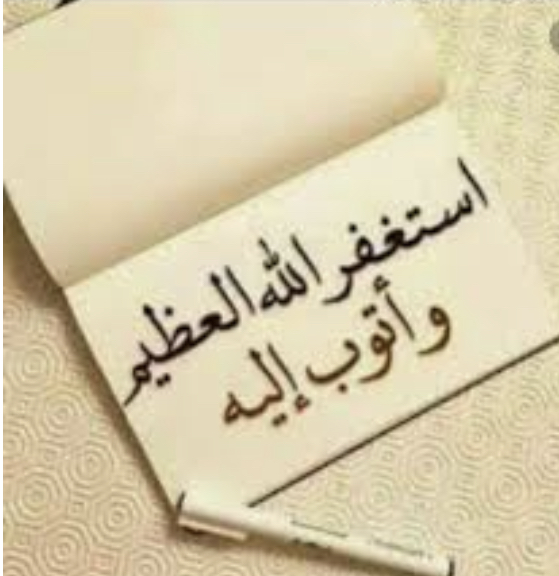 استغفر الله العظيم
وأتوب إليه